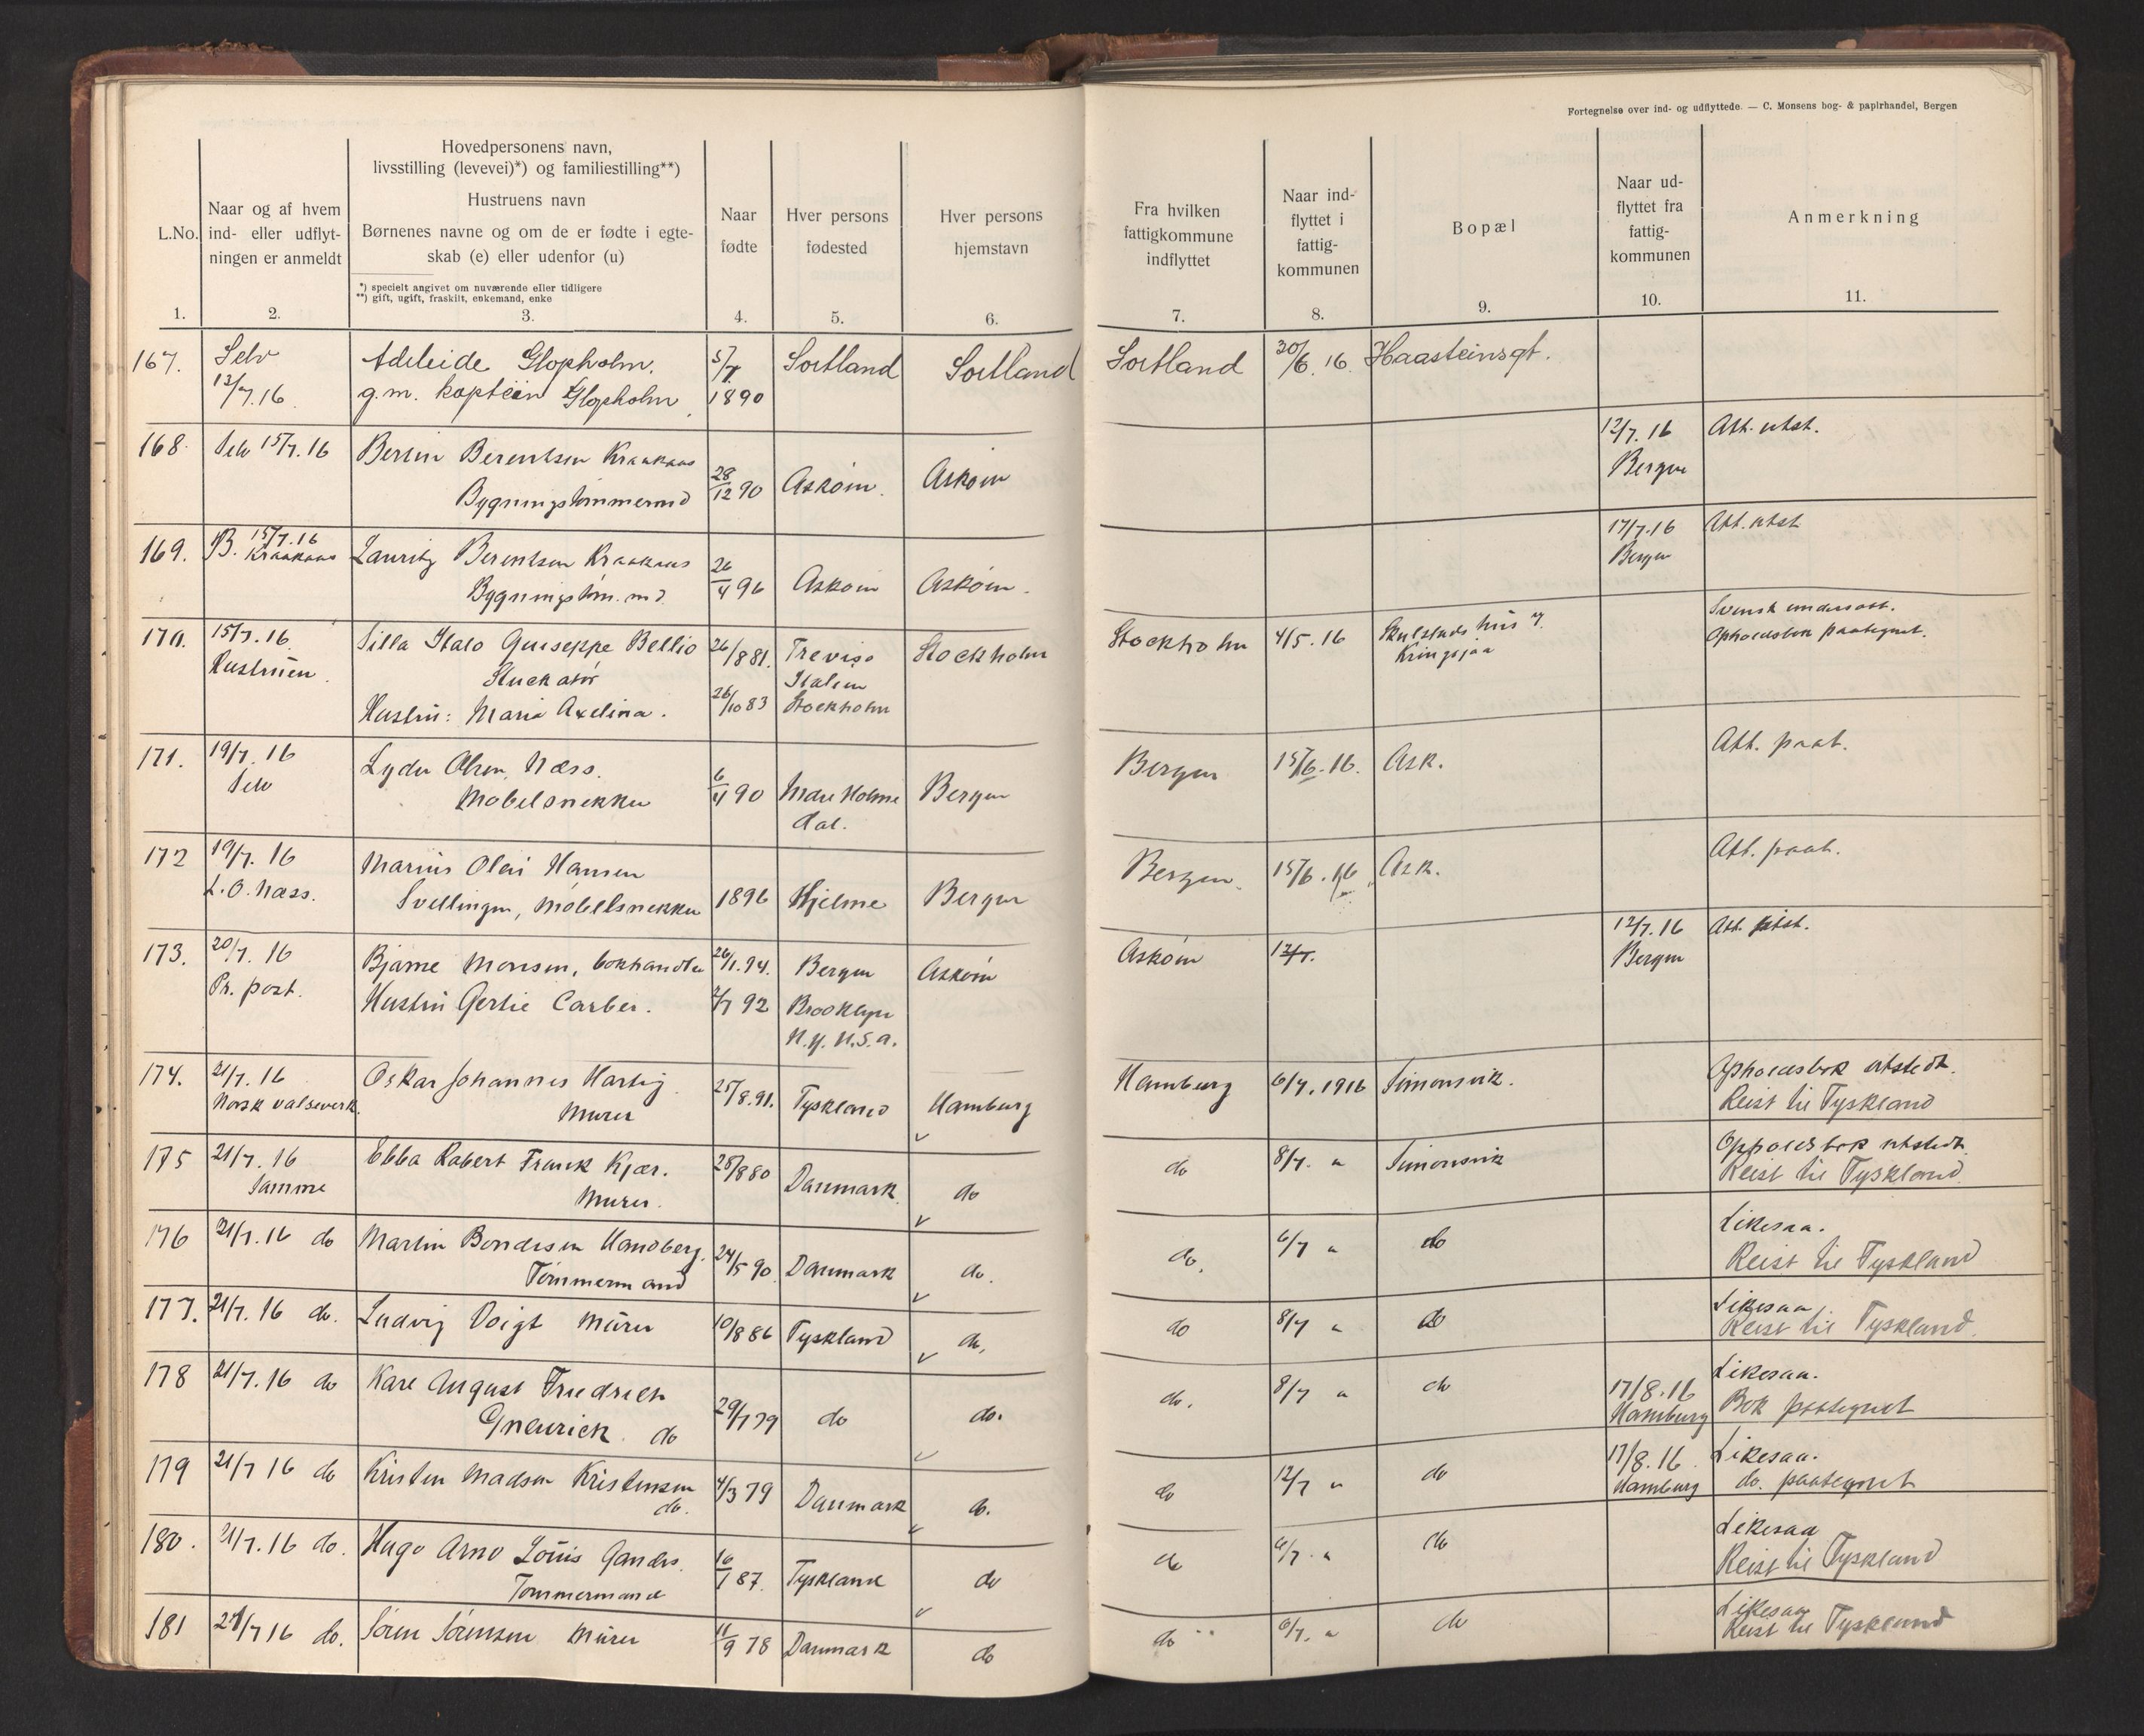 Fortegnelse over ind- og udflyttede. — C. Monsens bog- & papirhandel, Bergen
L.No.
1.
Naar og af hvem
ind- eller udflyt-
ningen er anmeldt
2.
Hovedpersonens navn,
livsstilling (levevei)*) og familiestilling**)
Hustruens navn
Børnenes navne og om de er fødte i egte-
skab (e) eller udenfor (u)
*) specielt angivet om nuværende eller tidligere
**) gift, ugift, fraskilt, enkemand, enke
3.
Naar
fødte
4.
Hver persons
fødested
5.
Hver persons
hjemstavn
6.
Fra hvilken
fattigkommune
indflyttet
7.
Naar ind-
flyttet i
fattig-
kommunen
8.
Bopæl
9.
Naar ud-
flyttet fra
fattig-
kommunen
10.
Anmerkning
11.
167. Selv Adeleide Glopholm. 5/7. Sortland Sortland Sortland 30/6. 16. Haasteinsgt.
12/7.16 g.m. kaptein Glopholm 1890
168. Selv 15/7.16 Bertin Berentsen Kraakaas 28/12 90 Askøin. Askøin 12/7. 16 Att. utst.
Bygningstømmermd Bergen
169. B. 15/7.16 Kraakaas Lauritz Berentsen Kraakaas 26/4 96 Askøin Askøin. 17/7.16 Att. utst
Bygningstøm. md. Bergen
170. 15/7.16. Silla Italo Guiseppe Bellio 26/8 81. Treviso Stockholm Stockholm 4/5. 16 Skulstads hus Svensk undersott.
Hustruen. Stuckatör Italien Kringsjaa Opholdsbok paategnet.
Hustru: Maria Axelina. 26/10 83 Stockholm
171. 19/7. 16 Lyder Olsen Næss. 6/4 90 Indre Holme Bergen Bergen 15/6. 16. Ask. Att. paat.
Selv Møbelsnekker dal.
172 19/7. 16 Marius Olai Hansen 1896 Hjelme Bergen Bergen. 15/6. 16 Ask. Att. paat.
L.O. Næss. Svellingen, Møbelsnekker
173. 20/7. 16 Bjarne Monsen, bokhandler 26/1.94. Bergen Askøin Askøin 12/7. 12/7.16 Att. utst.
Pr. post. Hustru Gertie Carber. 2/7 92 Brooklyn Bergen
N.Y. U.S.A.
174. 21/7. 16 Oskar Johannes Hartig. 25/8.91. Tyskland Hamburg Hamburg 6/7. 1916 Simonsvik. Opholdsbok utstedt.
Norsk valseverk. Murer Reist til Tyskland
175 21/7. 16 Ebba Robert Frank Kjær. 28/8 80 Danmark do do 8/7. " Simonsvik Opholdsbok utstedt
Samme Murer. Reist til Tyskland
176 21/7. 16 do Martin Bondesen Handberg. 24/5 90. Danmark do. do. 6/7 " do Likesaa.
Tømmermand Reist til Tyskland
177. 21/7. 16 do. Ludvig Voigt Murer 10/8 86 Tyskland do. do 8/7 " do Likesaa.
Reist til Tyskland.
178 21/7. 16 do Karl August Friedrich 29/7 79 do do. do. 8/7 " do 17/8. 16 Likesaa.
Gneurick do Hamburg Bok paategnet
179 21/7 16 do Kristen Madsen Kristensen 4/3 79 Danmark do. do 12/7 " do 17/8. 16. Likesaa.
do. Hamburg do. paategnet
180. 21/7. 16 do. Hugo Arno Louis Ganders. 16/1 87. Tyskland do do 6/7. " do Likesaa
Tømmermand Reist til Tyskland
181 21/7 16 do. Søren Sørensen Murer 11/9 78 Danmark do do 6/7. " do Likesaa
Reist til Tyskland